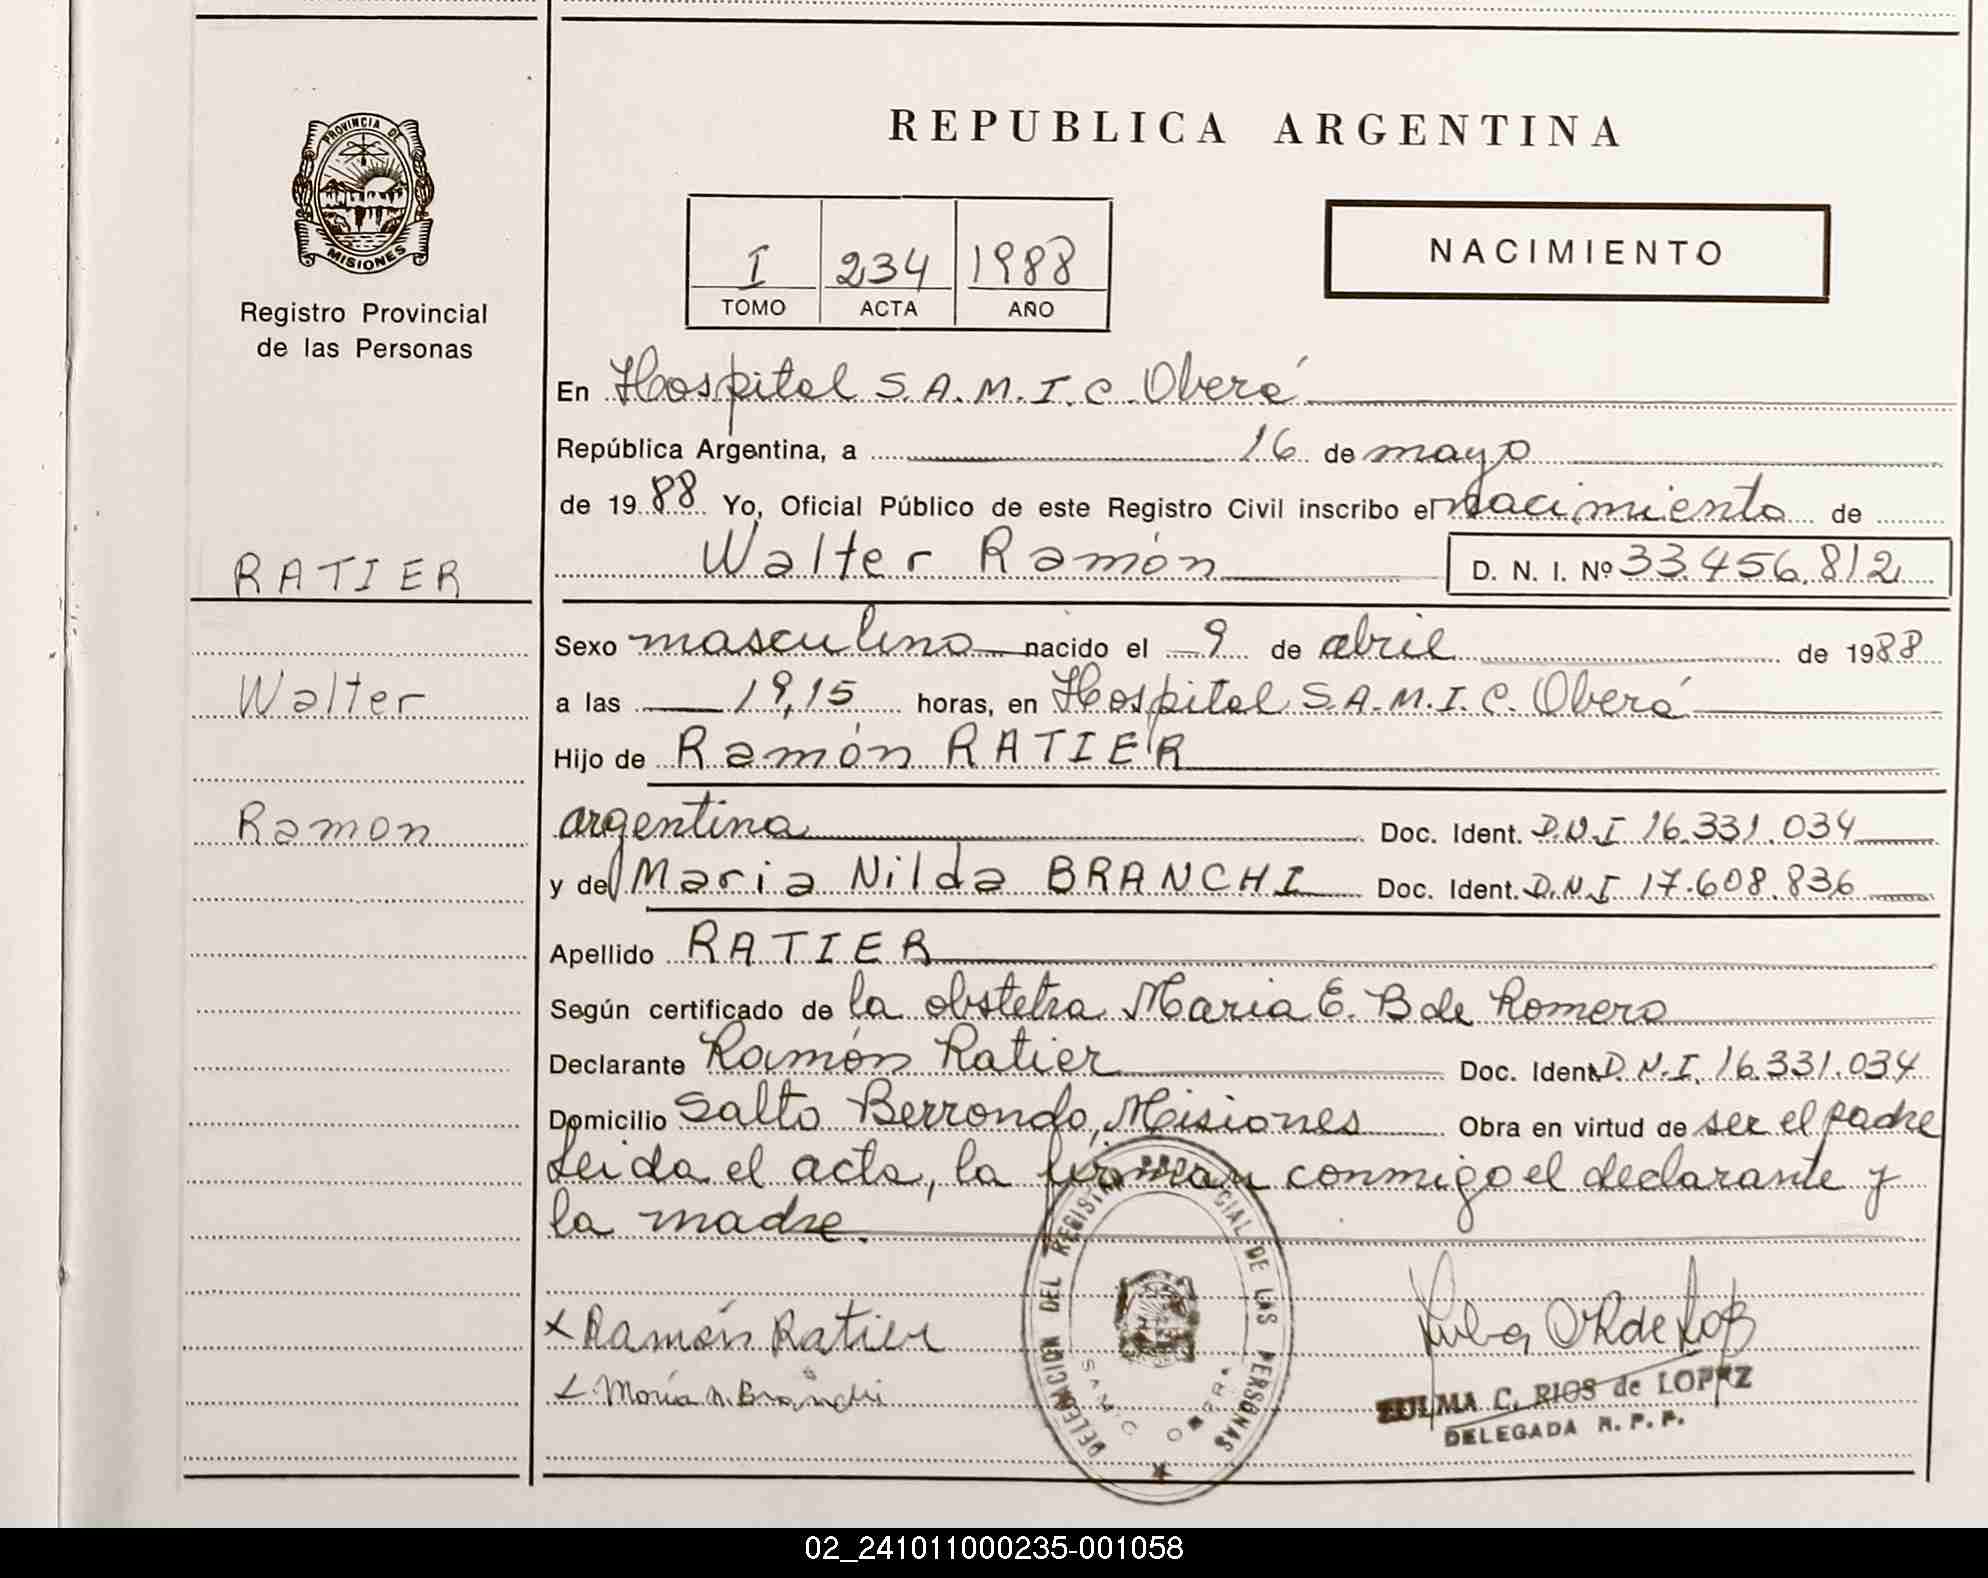 PROVINCIA DE
MISIONES
Registro Provincial
de las Personas
RATIER
Walter
Ramon
REPUBLICA ARGENTINA
I 234 1988
TOMO ACTA AÑO
NACIMIENTO
En Hospital S.A.M.I.C. Oberá
República Argentina, a 16 de mayo
de 1988 Yo, Oficial Público de este Registro Civil inscribo el nacimiento de
Walter Ramón D. N. I. Nº 33.456.812
Sexo masculino nacido el 9 de abril de 1988
a las 19,15 horas, en Hospital S.A.M.I.C. Oberá
Hijo de Ramón RATIER
argentina Doc. Ident. D.N.I 16.331.034
y de Maria Nilda BRANCHI Doc. Ident. D.N.I 17.608.836
Apellido RATIER
Según certificado de la obstetra Maria E. B de Romero
Declarante Ramón Ratier Doc. Ident. D.N.I. 16.331.034
Domicilio Salto Berrondo, Misiones Obra en virtud de ser el padre
Leida el acta, la firman conmigo el declarante y
la madre.
x Ramón Ratier
x María N. Branchi
DELEGACION DEL REGISTRO PROVINCIAL DE LAS PERSONAS
SAMIC OBERA
ZULMA C. RIOS de LOPEZ
DELEGADA R. P. P.
02_241011000235-001058